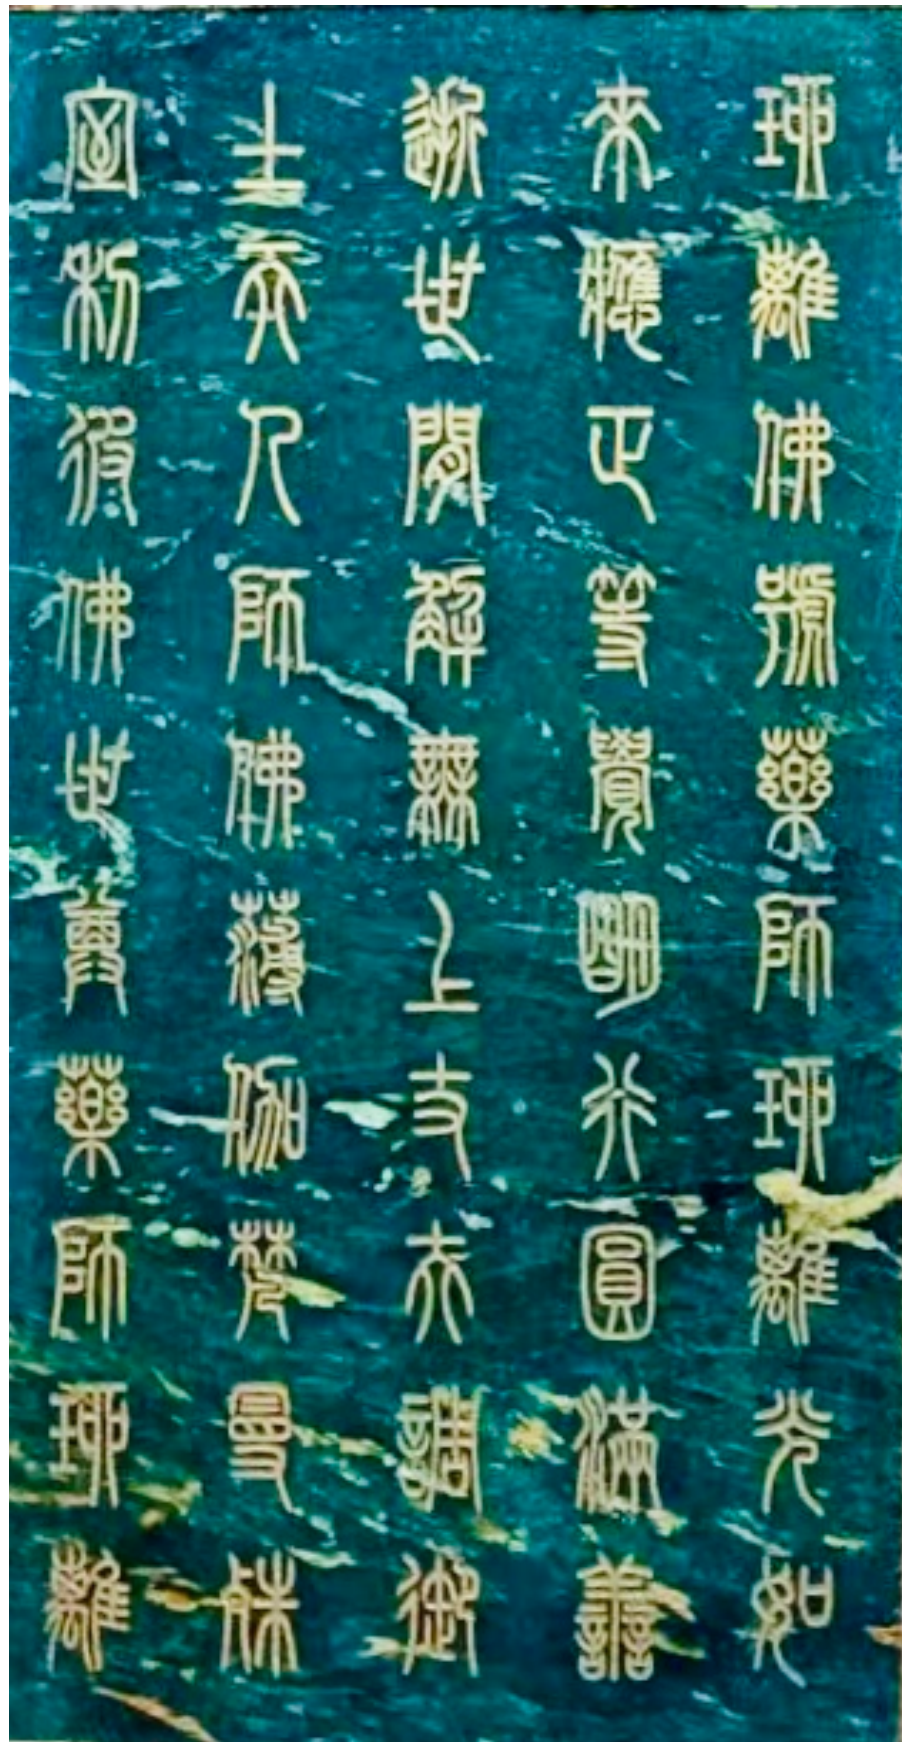 琉離佛號藥師琉離光如
來應正等覺明行圓滿善
逝世間解無上丈夫調御
士天人師佛薄伽梵曼殊
室利彼佛世尊藥師琉離